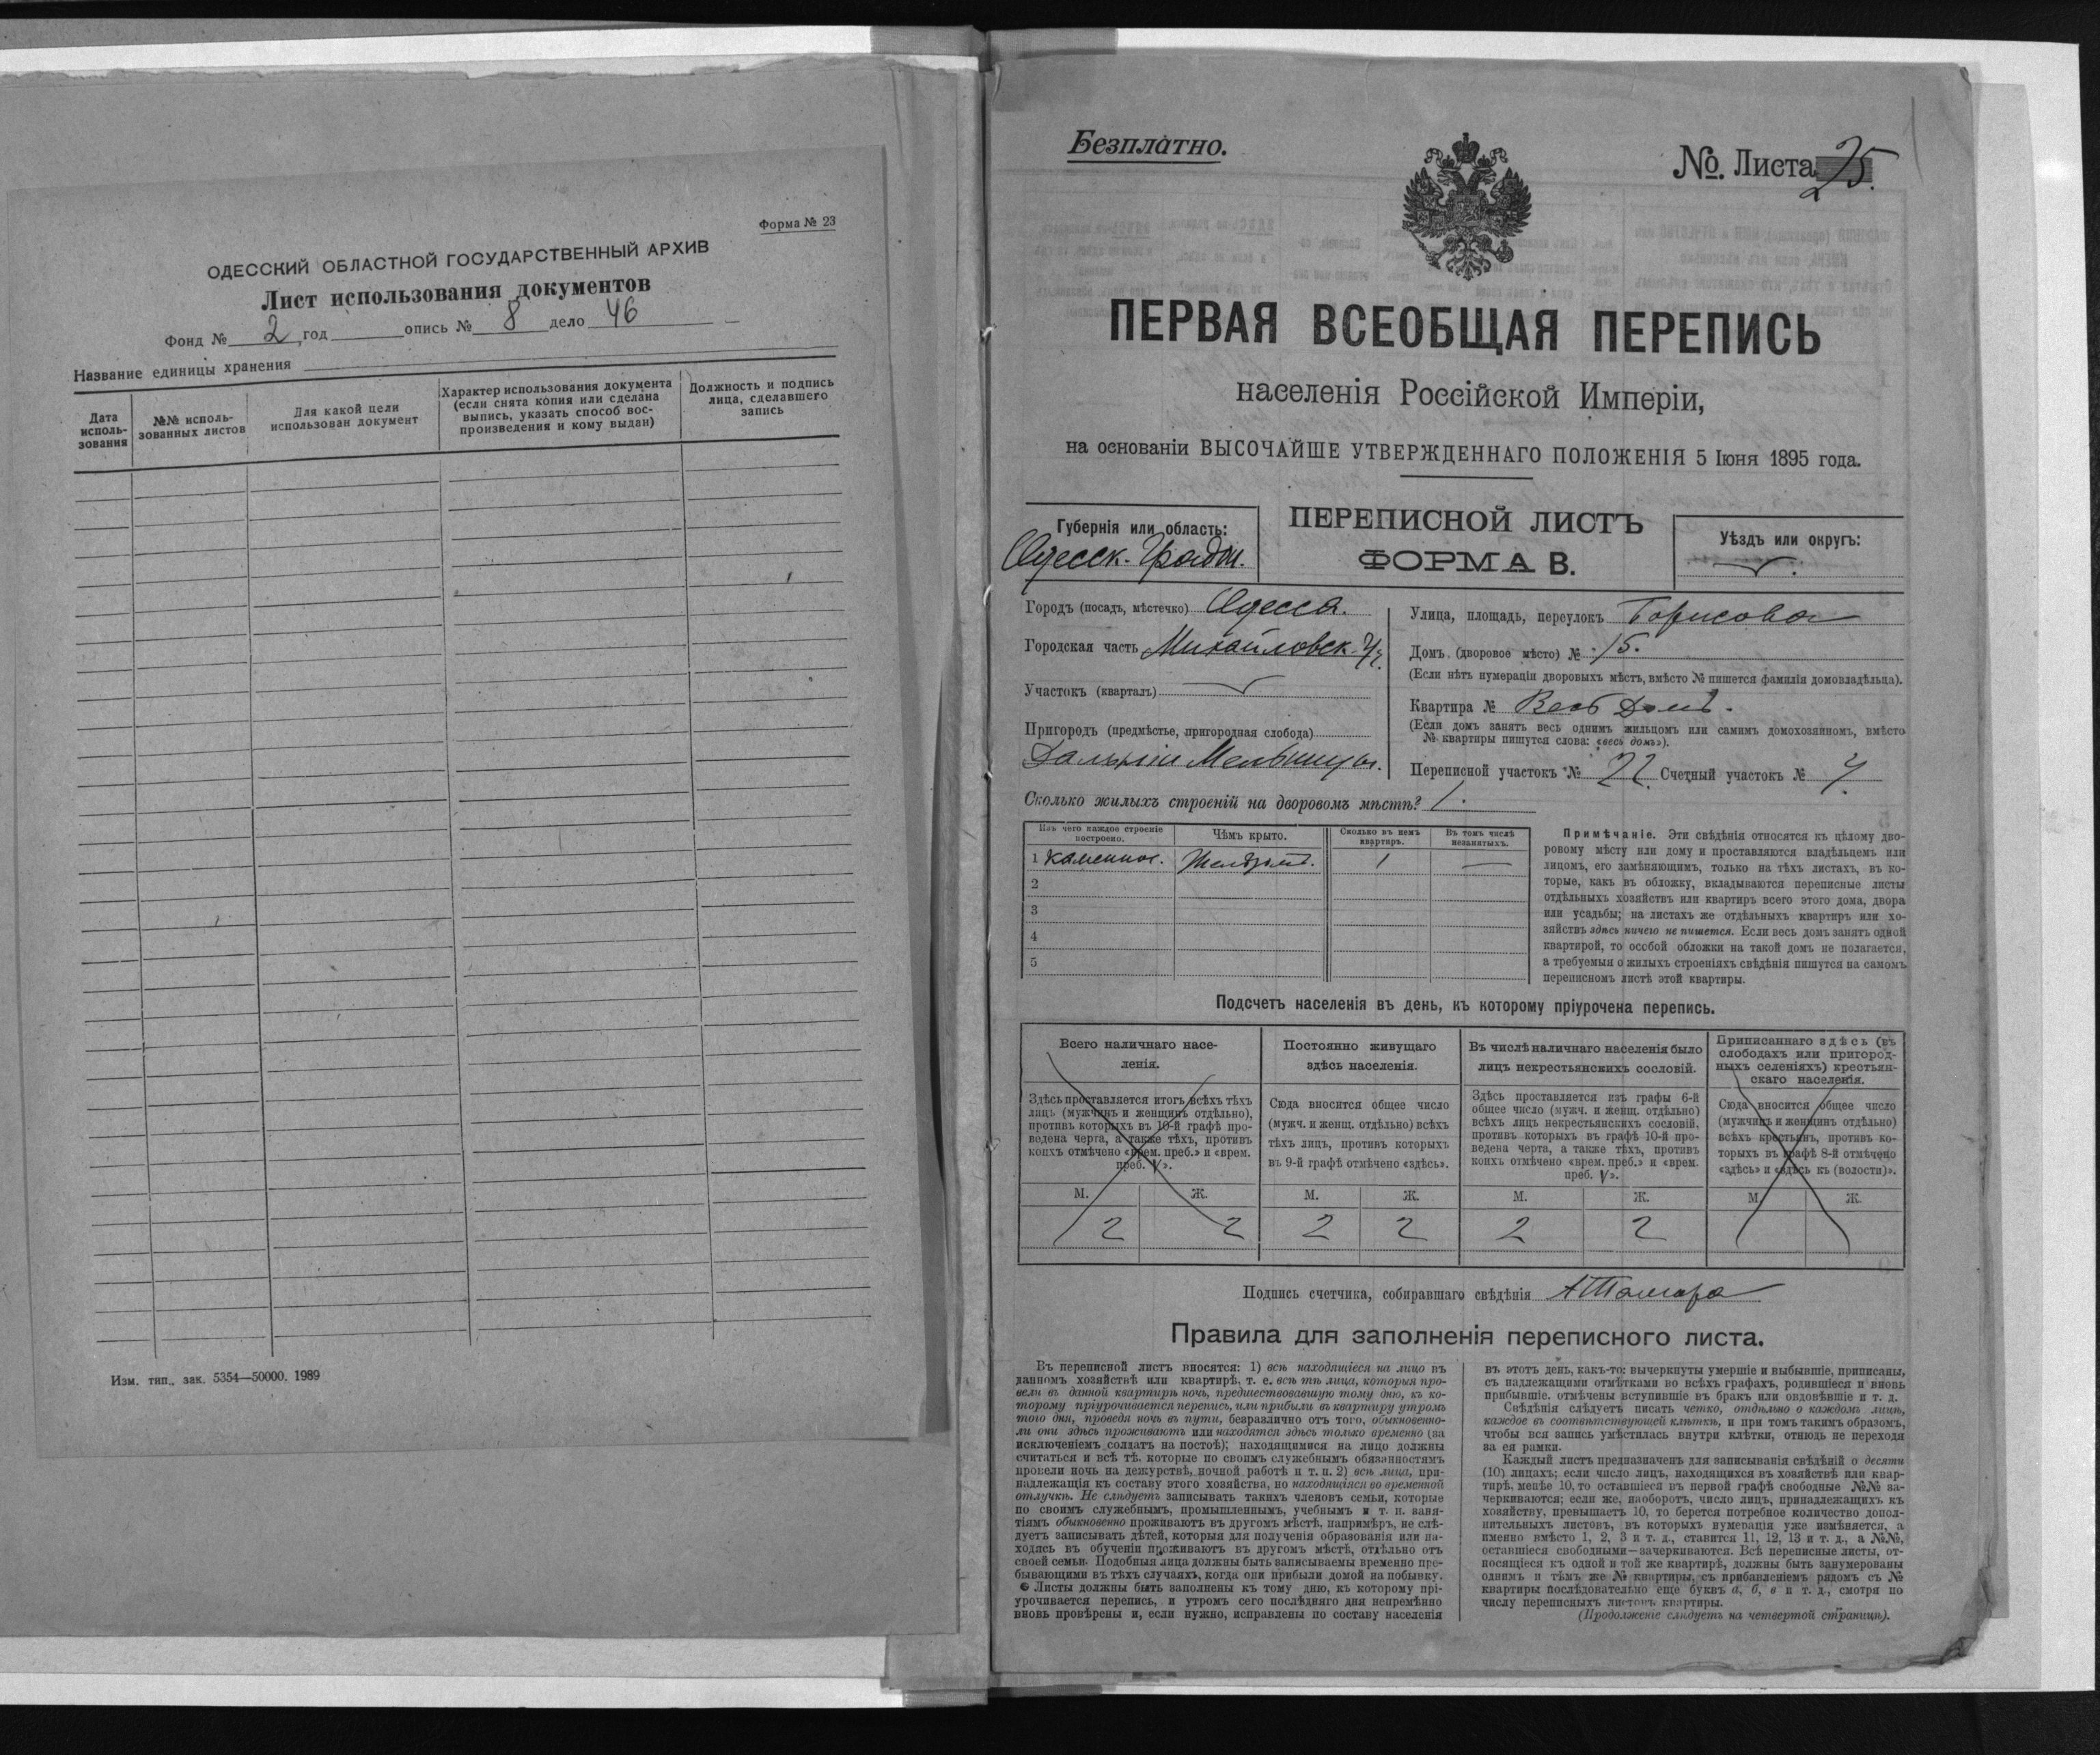 Форма № 23
ОДЕССКИЙ ОБЛАСТНОЙ ГОСУДАРСТВЕННЫЙ АРХИВ
Лист использования документов
Фонд № 2, год опись № 8 дело 46
Название единицы хранения
Дата исполь-зования
№№ исполь-зованных листов
Для какой цели использован документ
Характер использования документа (если снята копия или сделана выпись, указать способ вос-произведения и кому выдан)
Должность и подпись лица, сделавшего запись
Изм. тип., зак. 5354—50000. 1989
Безплатно.
№. Листа 25.
ПЕРВАЯ ВСЕОБЩАЯ ПЕРЕПИСЬ
населенія Россійской Имперіи,
на основаніи ВЫСОЧАЙШЕ УТВЕРЖДЕННАГО ПОЛОЖЕНІЯ 5 Іюня 1895 года.
Губернія или область:
Одесск. Градон.
ПЕРЕПИСНОЙ ЛИСТЪ
ФОРМА В.
Уѣздъ или округъ:
Городъ (посадъ, мѣстечко) Одесса.
Городская часть Михайловск. Уч.
Участокъ (кварталъ)
Пригородъ (предмѣстье, пригородная слобода)
Дальнія Мельницы.
Улица, площадь, переулокъ Борисова
Домъ (дворовое мѣсто) № 15.
(Если нѣтъ нумераціи дворовыхъ мѣстъ, вмѣсто № пишется фамилія домовладѣльца).
Квартира № Весь Домъ.
(Если домъ занятъ весь однимъ жильцомъ или самимъ домохозяиномъ, вмѣсто
№ квартиры пишутся слова: «весь домъ»).
Переписной участокъ № 22. Счетный участокъ № 7.
Сколько жилыхъ строеній на дворовомъ мѣстѣ? 1.
Изъ чего каждое строеніе построено.
Чѣмъ крыто.
Сколько въ немъ квартиръ.
Въ томъ числѣ незанятыхъ.
1 каменное. Желѣзомъ. 1 —
2
3
4
5
Примѣчаніе. Эти свѣдѣнія относятся къ цѣлому дво-
ровому мѣсту или дому и проставляются владѣльцемъ или
лицомъ, его замѣняющимъ, только на тѣхъ листахъ, въ ко-
торые, какъ въ обложку, вкладываются переписные листы
отдѣльныхъ хозяйствъ или квартиръ всего этого дома, двора
или усадьбы; на листахъ же отдѣльныхъ квартиръ или хо-
зяйствъ здѣсь ничего не пишется. Если весь домъ занятъ одной
квартирой, то особой обложки на такой домъ не полагается,
а требуемыя о жилыхъ строеніяхъ свѣдѣнія пишутся на самомъ
переписномъ листѣ этой квартиры.
Подсчетъ населенія въ день, къ которому пріурочена перепись.
Всего наличнаго насе-
ленія.
Здѣсь проставляется итогъ всѣхъ тѣхъ
лицъ (мужчинъ и женщинъ отдѣльно),
противъ которыхъ въ 10-й графѣ про-
ведена черта, а также тѣхъ, противъ
коихъ отмѣчено «врем. преб.» и «врем.
преб. V».
Постоянно живущаго
здѣсь населенія.
Сюда вносится общее число
(мужч. и женщ. отдѣльно) всѣхъ
тѣхъ лицъ, противъ которыхъ
въ 9-й графѣ отмѣчено «здѣсь».
Въ числѣ наличнаго населенія было
лицъ некрестьянскихъ сословій.
Здѣсь проставляется изъ графы 6-й
общее число (мужч. и женщ. отдѣльно)
всѣхъ лицъ некрестьянскихъ сословій,
противъ которыхъ въ графѣ 10-й про-
ведена черта, а также тѣхъ, противъ
коихъ отмѣчено «врем. преб.» и «врем.
преб. V».
Приписаннаго здѣсь (въ
слободахъ или пригород-
ныхъ селеніяхъ) крестьян-
скаго населенія.
Сюда вносится общее число
(мужчинъ и женщинъ отдѣльно)
всѣхъ крестьянъ, противъ ко-
торыхъ въ графѣ 8-й отмѣчено
«здѣсь» и «здѣсь къ (волости)».
М. Ж. М. Ж. М. Ж. М. Ж.
2 2 2 2 2 2
Подпись счетчика, собиравшаго свѣдѣнія
Правила для заполненія переписного листа.
Въ переписной листъ вносятся: 1) всѣ находящіеся на лицо въ
данномъ хозяйствѣ или квартирѣ, т. е. всѣ тѣ лица, которыя про-
вели въ данной квартирѣ ночь, предшествовавшую тому дню, къ ко-
торому пріурочивается перепись, или прибыли въ квартиру утромъ
того дня, проведя ночь въ пути, безразлично отъ того, обыкновенно-
ли они здѣсь проживаютъ или находятся здѣсь только временно (за
исключеніемъ солдатъ на постоѣ); находящимися на лицо должны
считаться и всѣ тѣ, которые по своимъ служебнымъ обязанностямъ
провели ночь на дежурствѣ, ночной работѣ и т. п. 2) всѣ лица, при-
надлежащія къ составу этого хозяйства, но находящіяся во временной
отлучкѣ. Не слѣдуетъ записывать такихъ членовъ семьи, которые
по своимъ служебнымъ, промышленнымъ, учебнымъ и т. п. заня-
тіямъ обыкновенно проживаютъ въ другомъ мѣстѣ, напримѣръ, не слѣ-
дуетъ записывать дѣтей, которыя для полученія образованія или на-
ходясь въ обученіи проживаютъ въ другомъ мѣстѣ, отдѣльно отъ
своей семьи. Подобныя лица должны быть записываемы временно пре-
бывающими въ тѣхъ случаяхъ, когда они прибыли домой на побывку.
Листы должны быть заполнены къ тому дню, къ которому прі-
урочивается перепись, и утромъ сего послѣдняго дня непремѣнно
вновь провѣрены и, если нужно, исправлены по составу населенія
въ этотъ день, какъ-то: вычеркнуты умершіе и выбывшіе, приписаны,
съ надлежащими отмѣтками во всѣхъ графахъ, родившіеся и вновь
прибывшіе, отмѣчены вступившіе въ бракъ или овдовѣвшіе и т. д.
Свѣдѣнія слѣдуетъ писать четко, отдѣльно о каждомъ лицѣ,
каждое въ соотвѣтствующей клѣткѣ, и при томъ такимъ образомъ,
чтобы вся запись умѣстилась внутри клѣтки, отнюдь не переходя
за ея рамки.
Каждый листъ предназначенъ для записыванія свѣдѣній о десяти
(10) лицахъ; если число лицъ, находящихся въ хозяйствѣ или квар-
тирѣ, менѣе 10, то оставшіеся въ первой графѣ свободные №№ за-
черкиваются; если же, наоборотъ, число лицъ, принадлежащихъ къ
хозяйству, превышаетъ 10, то берется потребное количество допол-
нительныхъ листовъ, въ которыхъ нумерація уже измѣняется, а
именно вмѣсто 1, 2, 3 и т. д., ставится 11, 12, 13 и т. д., а №№,
оставшіеся свободными—зачеркиваются. Всѣ переписные листы, от-
носящіеся къ одной и той же квартирѣ, должны быть занумерованы
однимъ и тѣмъ же № квартиры, съ прибавленіемъ рядомъ съ №
квартиры послѣдовательно еще буквъ а, б, в и т. д., смотря по
числу переписныхъ листовъ квартиры.
(Продолженіе слѣдуетъ на четвертой страницѣ).